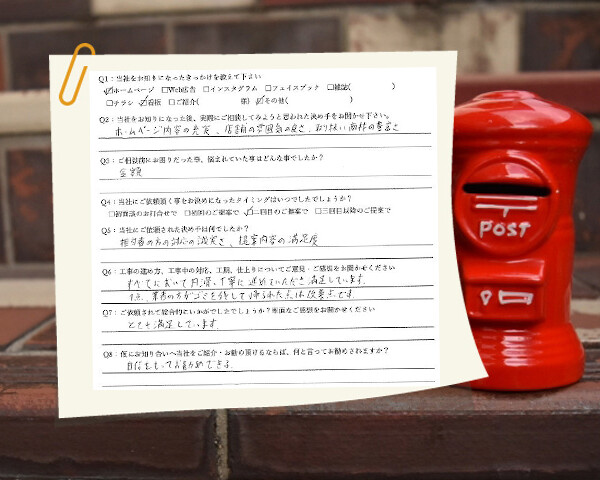 Q1：当社をお知りになったきっかけを教えて下さい
☑ホームページ □Web広告 □インスタグラム □フェイスブック □雑誌( )
□チラシ ☑看板 □ご紹介( 様) ☑その他( )
Q2：当社をお知りになった後、実際にご相談してみようと思われた決め手をお聞かせ下さい。
ホームページ内容の充実、店舗の雰囲気の良さ、取り扱い商材の豊富さ
Q3：ご相談前にお困りだった事、悩まれていた事はどんな事でしたか？
金額
Q4：当社にご依頼頂く事をお決めになったタイミングはいつでしたでしょうか？
□初回談のお打合せで □初回のご提案で ☑二回目のご提案で □三回目以降のご提案で
Q5：当社にご依頼された決め手は何でしたか？
担当者の方の対応の誠実さ、提案内容の満足度
Q6：工事の進め方、工事中の対応、工期、仕上りについてご意見・ご感想をお聞かせください
すべてにおいて円滑、丁寧に進めていただき満足しています。
1点、業者の方がゴミを残して帰られた点は改善点です。
Q7：ご依頼されて総合的にいかがでしたでしょうか？率直なご感想をお聞かせください
とても満足しています。
Q8：仮にお知り合いへ当社をご紹介・お勧め頂けるならば、何と言ってお勧めされますか？
自信をもっておすすめできる。
POST